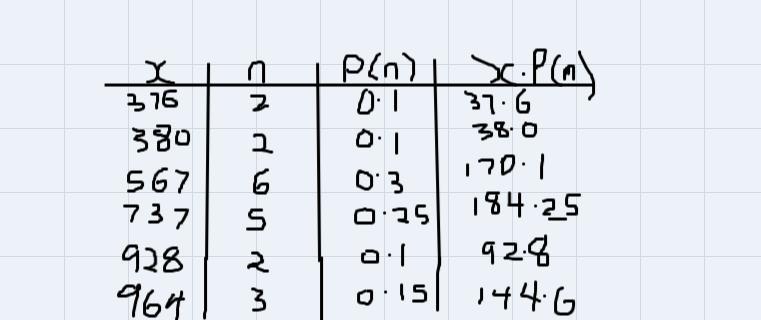 x n P(n) x.P(n)
376 2 0.1 37.6
380 2 0.1 38.0
567 6 0.3 170.1
737 5 0.25 184.25
928 2 0.1 92.8
964 3 0.15 144.6